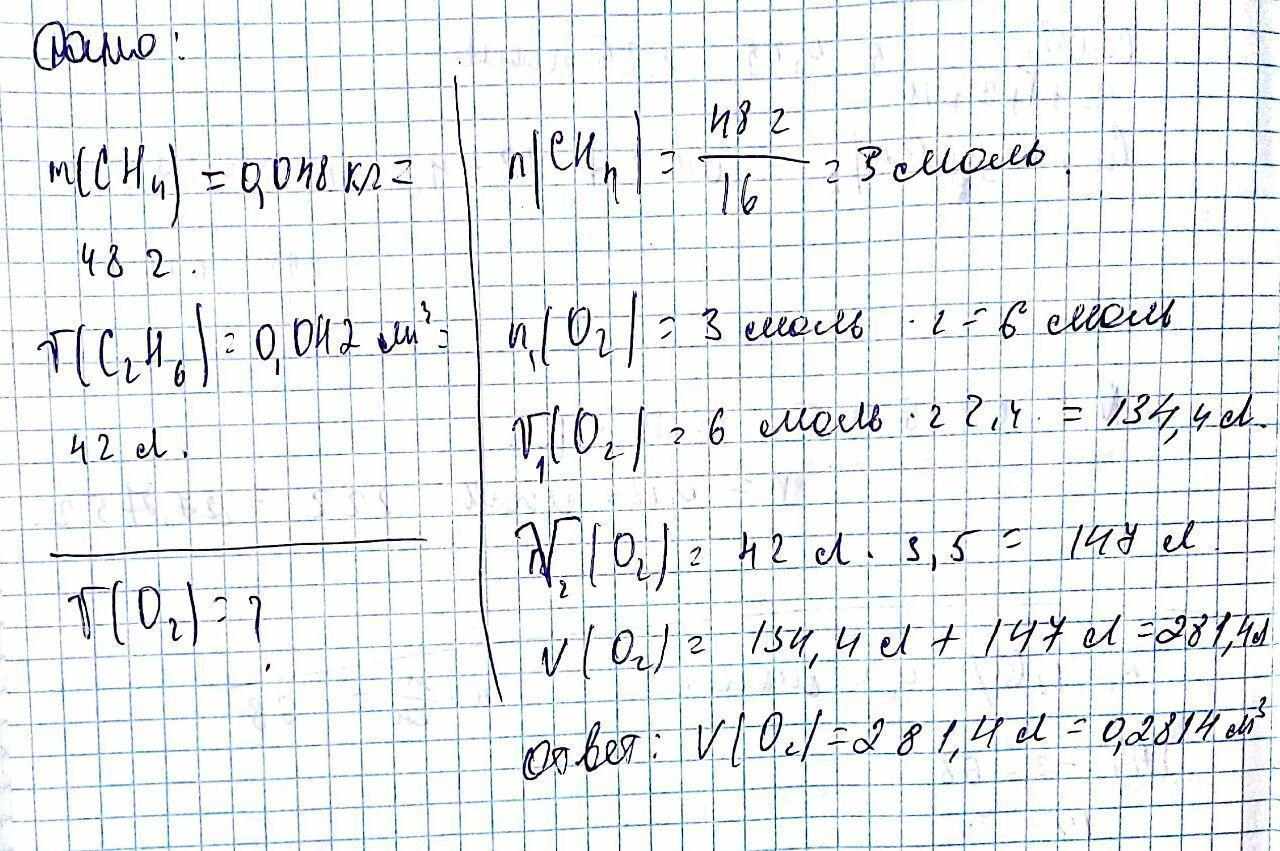 Дано:
m(CH4) = 0,048 кг =
48 г.
V(C2H6) = 0,042 м³ =
42 л.
V(O2) = ?
n(CH4) = 48 г / 16 = 3 моль.
n1(O2) = 3 моль · 2 = 6 моль
V1(O2) = 6 моль · 22,4 = 134,4 л.
V2(O2) = 42 л · 3,5 = 147 л
V(O2) = 134,4 л + 147 л = 281,4 л
Ответ: V(O2) = 281,4 л = 0,2814 м³